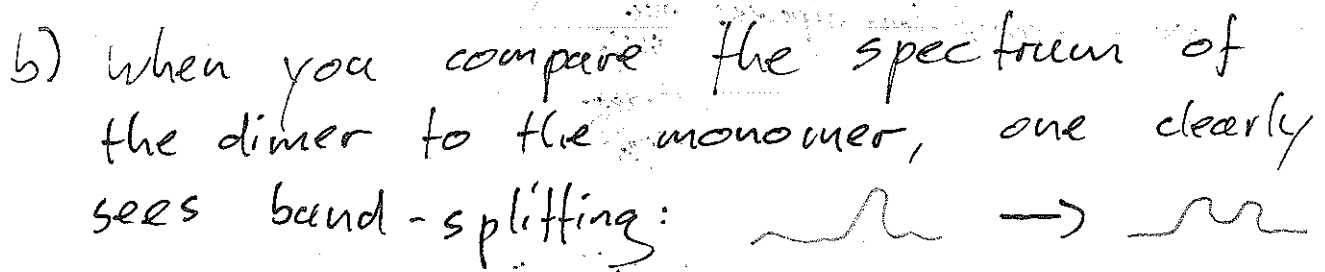 b) when you compare the spectrum of
the dimer to the monomer, one clearly
sees band-splitting: →